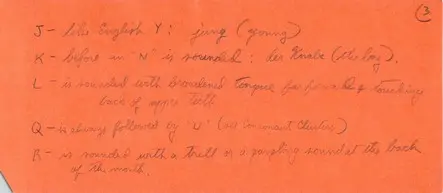 3
J - like English Y: jung (young)
K - before an 'N' is sounded: der Knabe (the boy).
L - is sounded with broadened tongue far forward & touching
back of upper teeth
Q - is always followed by 'U' (see Consonant Clusters)
R - is sounded with a trill or a gargling sound at the back
of the mouth.